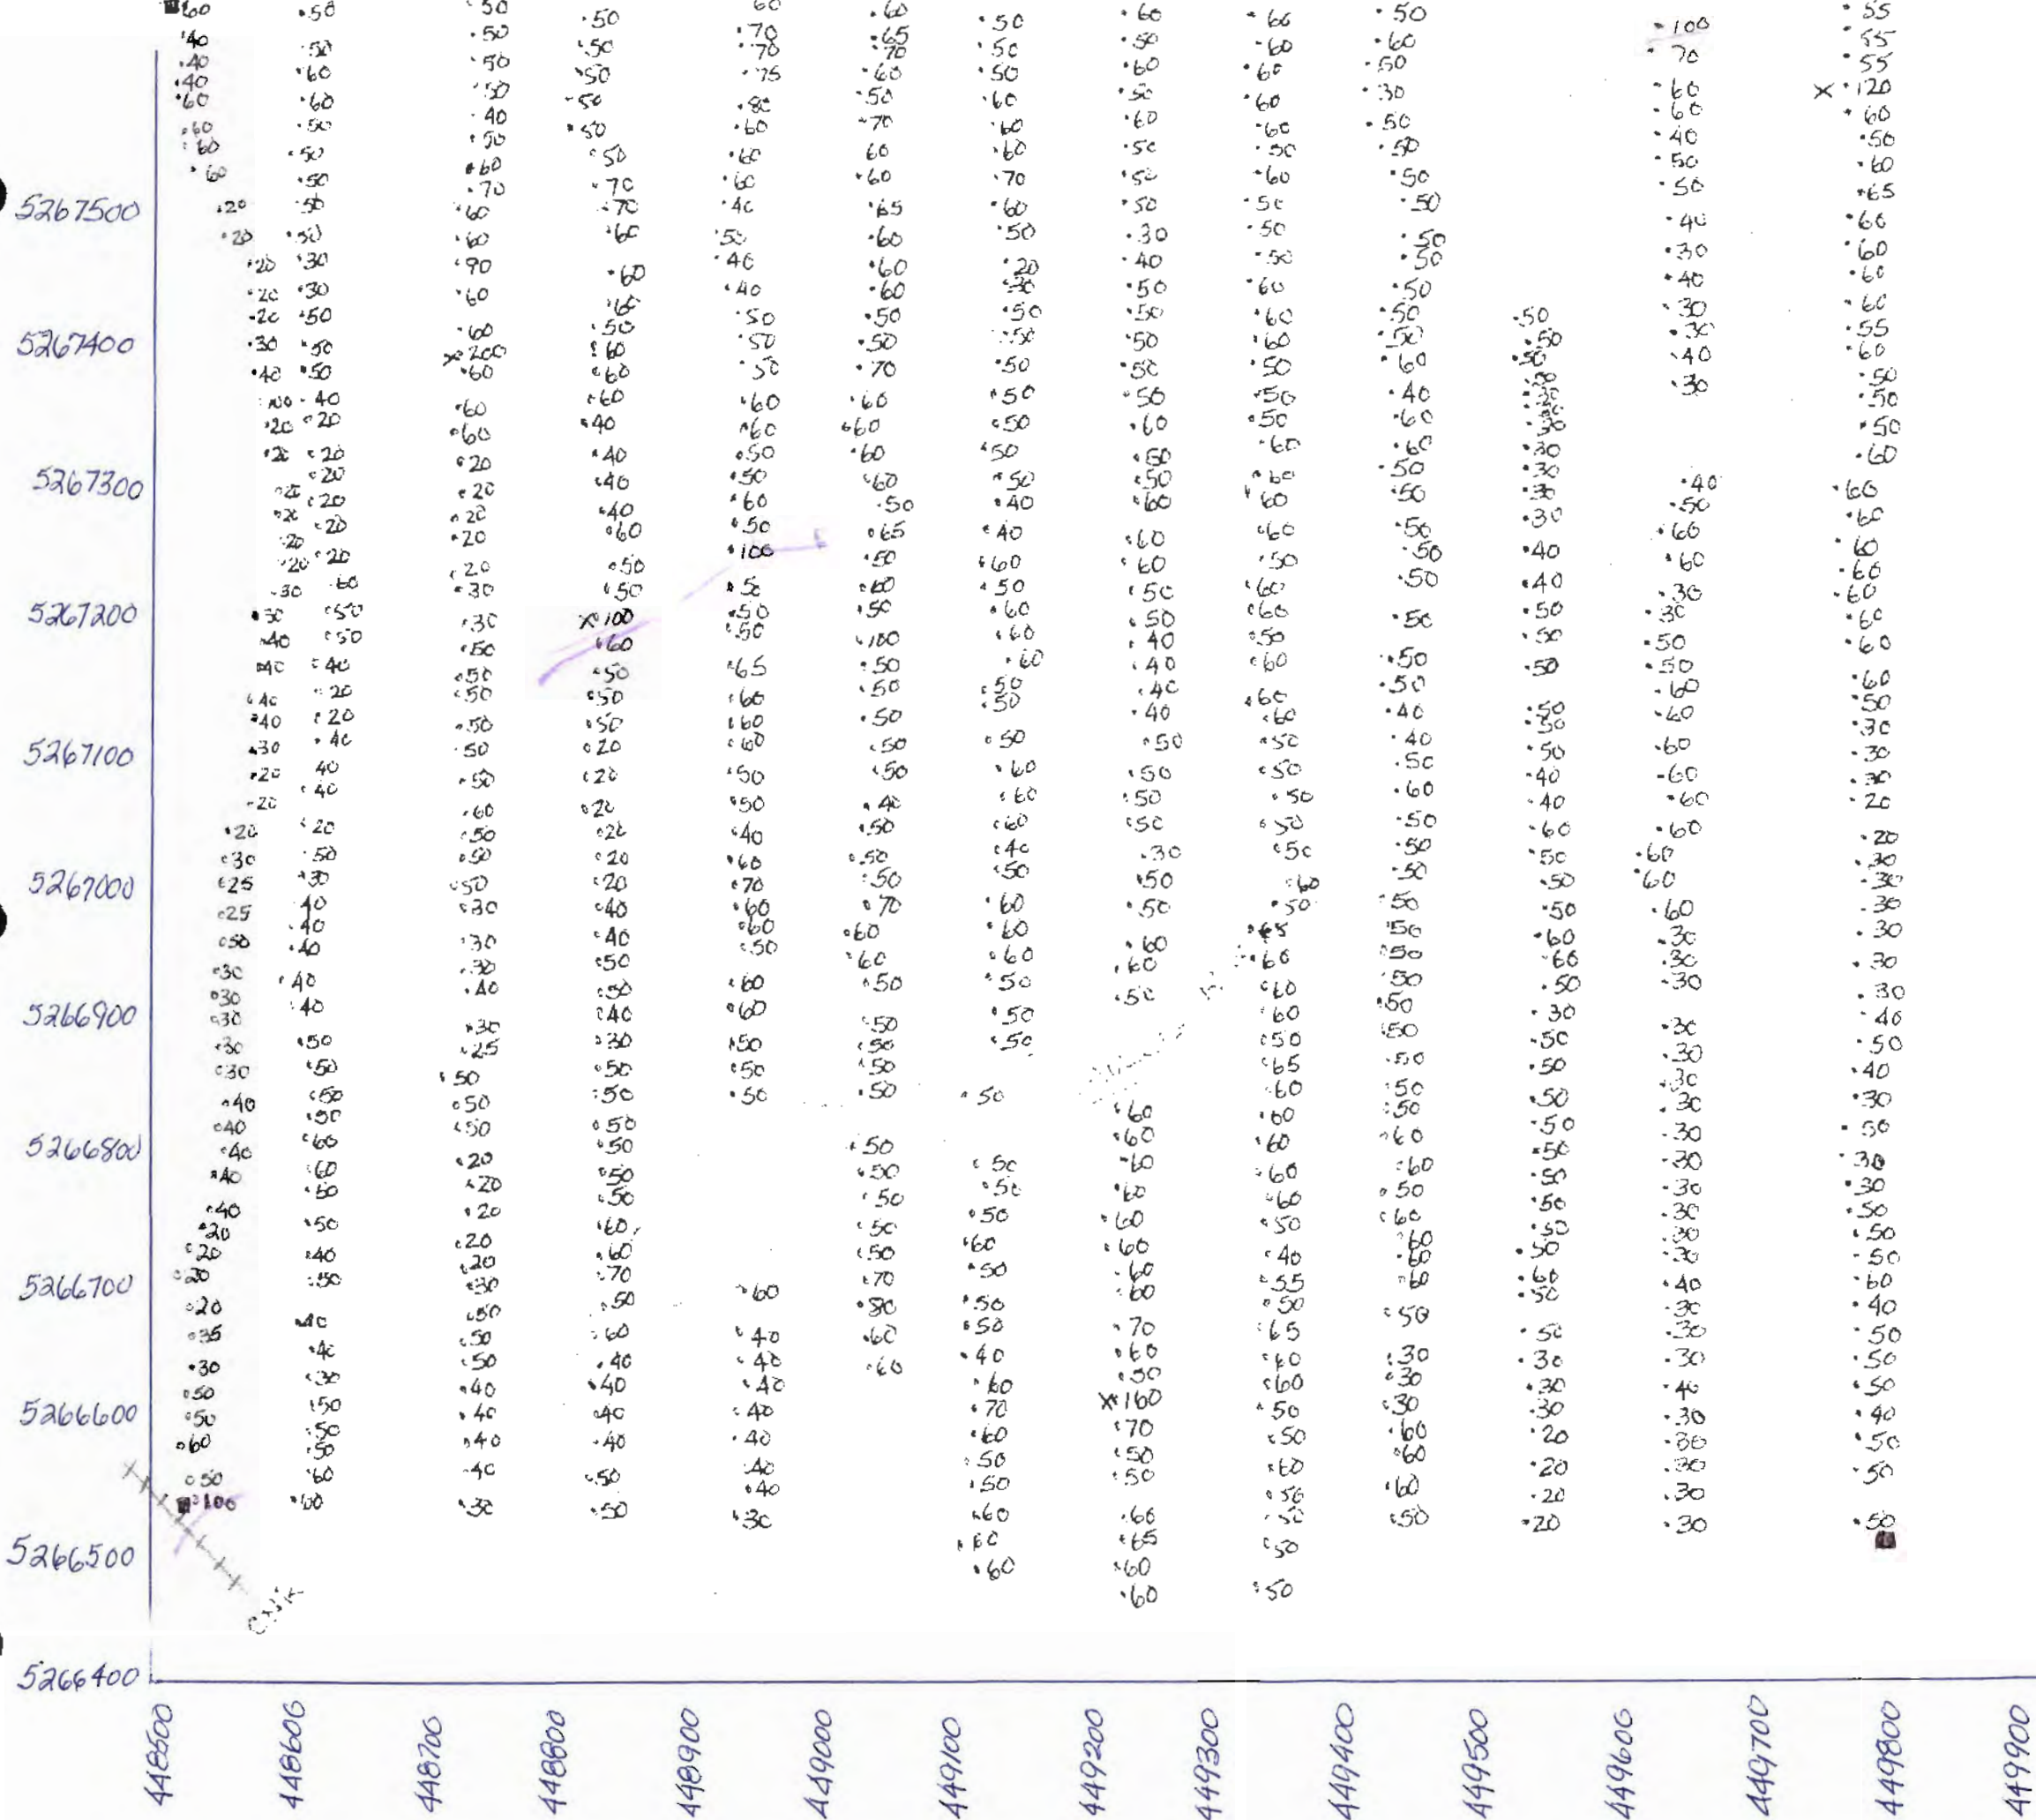 5267500
5267400
5267300
5267200
5267100
5267000
5266900
5266800
5266700
5266600
5266500
5266400
60 40 40 40 60 60 60 60 20 20 20 20 20 30 40 100 20 20 20 20 20 20 30 30 40 40 40 40 30 20 20 20 30 25 25 50 30 30 30 30 30 40 40 40 40 40 20 20 20 20 35 30 50 50 60 50 100
50 50 60 60 50 50 50 50 50 30 30 50 50 50 40 20 20 20 20 20 20 60 50 50 40 20 20 40 40 40 20 50 30 40 40 40 40 40 50 50 50 50 60 60 50 50 40 50 40 40 30 50 50 50 60 60
50 50 50 50 40 50 60 70 60 60 90 60 60 X 200 60 60 60 20 20 20 20 20 30 30 50 50 50 50 50 50 60 50 50 50 30 30 30 40 30 25 50 50 50 20 20 20 20 20 30 50 50 50 40 40 40 40 30
50 50 50 50 50 50 70 70 60 60 60 50 60 60 60 40 40 40 40 60 50 50 X 100 60 50 50 50 20 20 20 20 20 20 40 40 50 50 40 30 50 50 50 50 50 50 60 60 70 50 60 40 40 40 40 50 50
60 70 70 75 80 60 60 60 40 50 40 40 50 50 50 60 60 50 50 60 50 100 50 50 50 65 60 60 60 50 50 40 60 70 60 60 50 60 60 50 50 50 60 40 40 40 40 40 40 40 30
60 65 70 60 50 70 60 60 65 60 60 60 50 50 70 60 60 60 60 50 65 50 60 50 100 50 50 50 50 50 40 50 50 50 70 60 60 50 50 50 50 50 50 50 50 50 50 70 80 60 60
50 50 50 60 60 60 70 60 50 20 30 50 50 50 50 50 50 50 40 40 60 50 60 60 60 50 50 50 60 60 60 40 50 60 60 60 50 50 50 50 50 50 50 60 50 50 50 40 60 70 60 50 50 60 60 60
60 50 60 50 60 50 50 50 30 40 50 50 50 50 50 60 50 50 60 60 60 50 50 40 40 40 40 50 50 50 50 30 50 50 60 60 50 60 60 60 60 60 60 60 60 70 60 50 X 160 70 50 50 60 65 60 60
60 60 60 60 60 50 60 50 50 50 60 60 60 50 50 50 60 60 60 60 50 60 60 50 60 60 60 50 50 50 50 50 60 50 65 60 60 60 50 65 60 60 60 60 60 50 40 55 50 65 60 60 50 50 60 50 50 50 50
50 60 50 30 50 50 50 50 50 50 50 50 50 60 40 60 60 50 50 50 50 50 50 50 50 40 40 50 60 50 50 50 50 50 50 50 50 50 50 50 50 60 60 50 60 60 60 60 50 30 30 30 60 60 60 50
50 50 50 30 30 30 30 30 30 30 30 40 40 50 50 50 50 50 50 40 40 60 50 50 50 60 60 50 30 50 50 50 50 50 50 50 50 50 60 50 50 30 30 30 20 20 20 20
100 70 60 60 40 50 50 40 30 40 30 30 40 30 40 50 60 60 30 30 50 50 60 60 60 60 60 60 60 60 60 30 30 30 30 30 30 30 30 30 30 30 30 30 40 30 30 30 40 30 30 30 30 30
55 55 55 X 120 60 50 60 65 60 60 60 60 55 60 50 50 50 60 60 60 60 60 60 60 60 60 50 30 30 30 20 20 30 30 30 30 30 30 40 50 40 30 50 30 30 50 50 50 60 40 50 50 50 40 50 50 50
CNR
448500 448600 448700 448800 448900 449000 449100 449200 449300 449400 449500 449600 449700 449800 449900